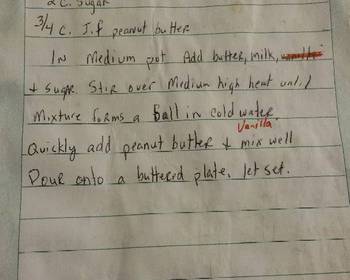 2 C. Sugar
3/4 C. J.f peanut butter
IN Medium pot Add butter, milk, vanilla
+ Sugar. Stir over Medium high heat until
Mixture forms a Ball in cold water.
Vanilla
Quickly add peanut butter + mix well
Pour onto a butterd plate, let set.